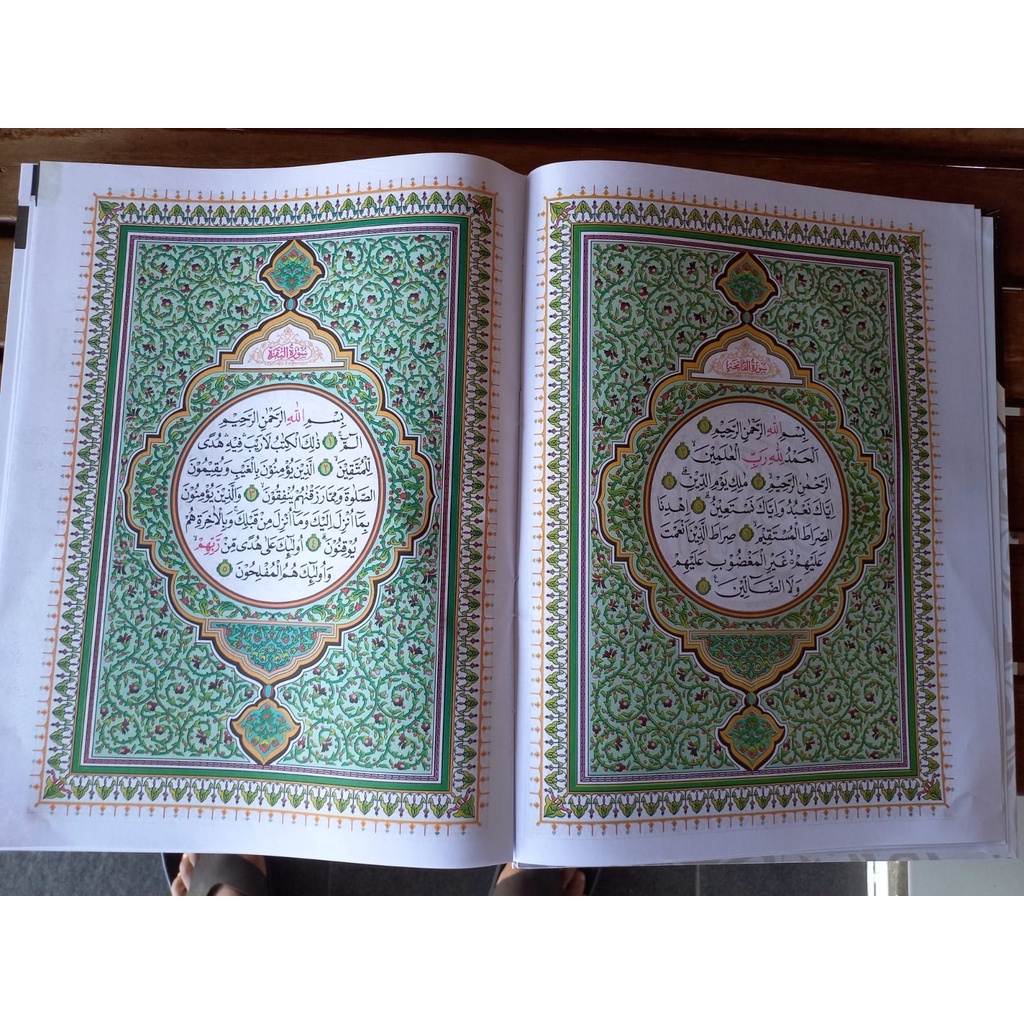 سُورَةُ الْفَاتِحَةِ
بِسْمِ اللّٰهِ الرَّحْمٰنِ الرَّحِيْمِ ۝١
اَلْحَمْدُ لِلّٰهِ رَبِّ الْعٰلَمِيْنَۙ ۝٢
الرَّحْمٰنِ الرَّحِيْمِۙ ۝٣ مٰلِكِ يَوْمِ الدِّيْنِۗ ۝٤
اِيَّاكَ نَعْبُدُ وَاِيَّاكَ نَسْتَعِيْنُۗ ۝٥ اِهْدِنَا
الصِّرَاطَ الْمُسْتَقِيْمَۙ ۝٦ صِرَاطَ الَّذِيْنَ اَنْعَمْتَ
عَلَيْهِمْ ەۙ غَيْرِ الْمَغْضُوْبِ عَلَيْهِمْ
وَلَا الضَّاۤلِّيْنَ ۝٧
سُورَةُ الْبَقَرَةِ
بِسْمِ اللّٰهِ الرَّحْمٰنِ الرَّحِيْمِ
الۤمّۤۚ ۝١ ذٰلِكَ الْكِتٰبُ لَا رَيْبَۛ فِيْهِۛ هُدًى
لِّلْمُتَّقِيْنَۙ ۝٢ الَّذِيْنَ يُؤْمِنُوْنَ بِالْغَيْبِ وَيُقِيْمُوْنَ
الصَّلٰوةَ وَمِمَّا رَزَقْنٰهُمْ يُنْفِقُوْنَۙ ۝٣ وَالَّذِيْنَ يُؤْمِنُوْنَ
بِمَآ اُنْزِلَ اِلَيْكَ وَمَآ اُنْزِلَ مِنْ قَبْلِكَۚ وَبِالْاٰخِرَةِ هُمْ
يُوْقِنُوْنَۗ ۝٤ اُولٰۤىِٕكَ عَلٰى هُدًى مِّنْ رَّبِّهِمْۙ
وَاُولٰۤىِٕكَ هُمُ الْمُفْلِحُوْنَ ۝٥